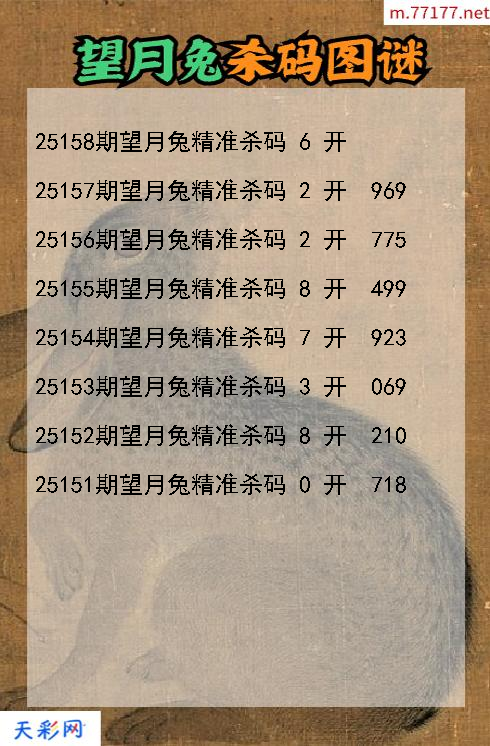 m.77177.net
望月兔杀码图谜
25158期望月兔精准杀码 6 开
25157期望月兔精准杀码 2 开 969
25156期望月兔精准杀码 2 开 775
25155期望月兔精准杀码 8 开 499
25154期望月兔精准杀码 7 开 923
25153期望月兔精准杀码 3 开 069
25152期望月兔精准杀码 8 开 210
25151期望月兔精准杀码 0 开 718
天彩网